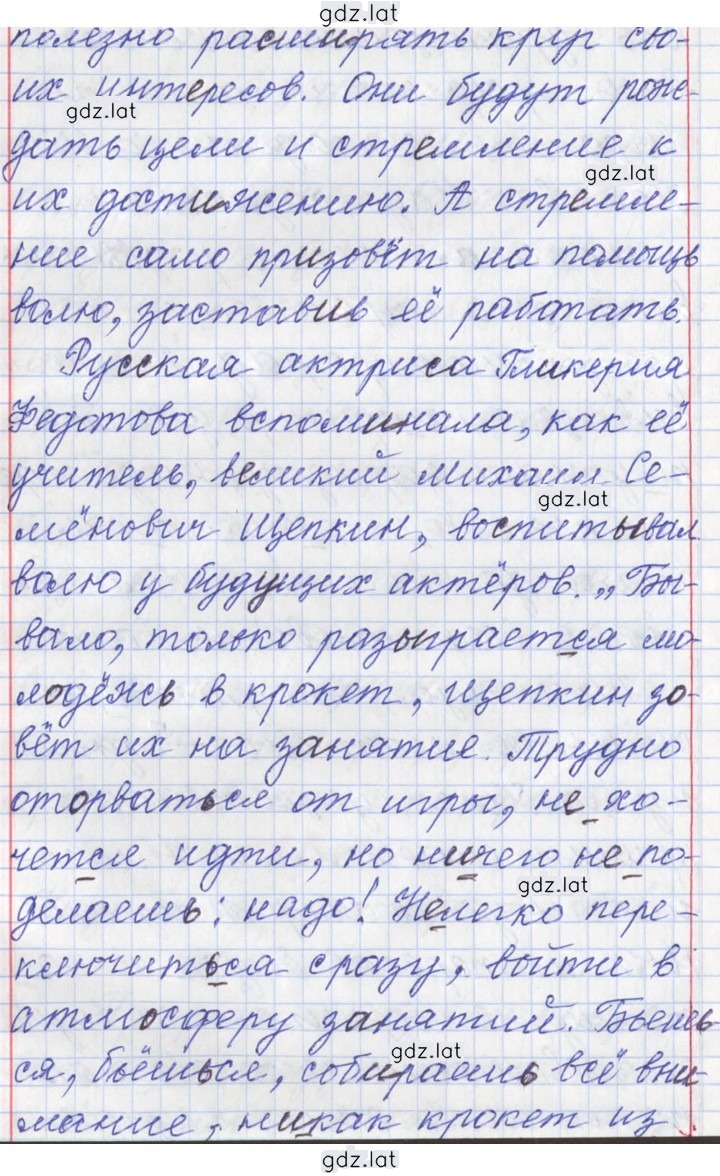 gdz.lat
полезно расширять круг сво-
их интересов. Они будут рож-
gdz.lat
дать цели и стремление к
gdz.lat
их достижению. А стремле-
ние само призовёт на помощь
волю, заставив её работать.
Русская актриса Гликерия
Федотова вспоминала, как её
учитель, великий Михаил Се-
gdz.lat
мёнович Щепкин, воспитывал
волю у будущих актёров. „Бы-
вало, только разыграется мо-
лодёжь в крокет, Щепкин зо-
вёт их на занятия. Трудно
оторваться от игры, не хо-
чется идти, но ничего не по-
gdz.lat
делаешь: надо! Нелегко пере-
ключиться сразу, войти в
атмосферу занятий. Бьёшь-
gdz.lat
ся, бьёшься, собираешь всё вни-
мание, никак крокет из
gdz.lat